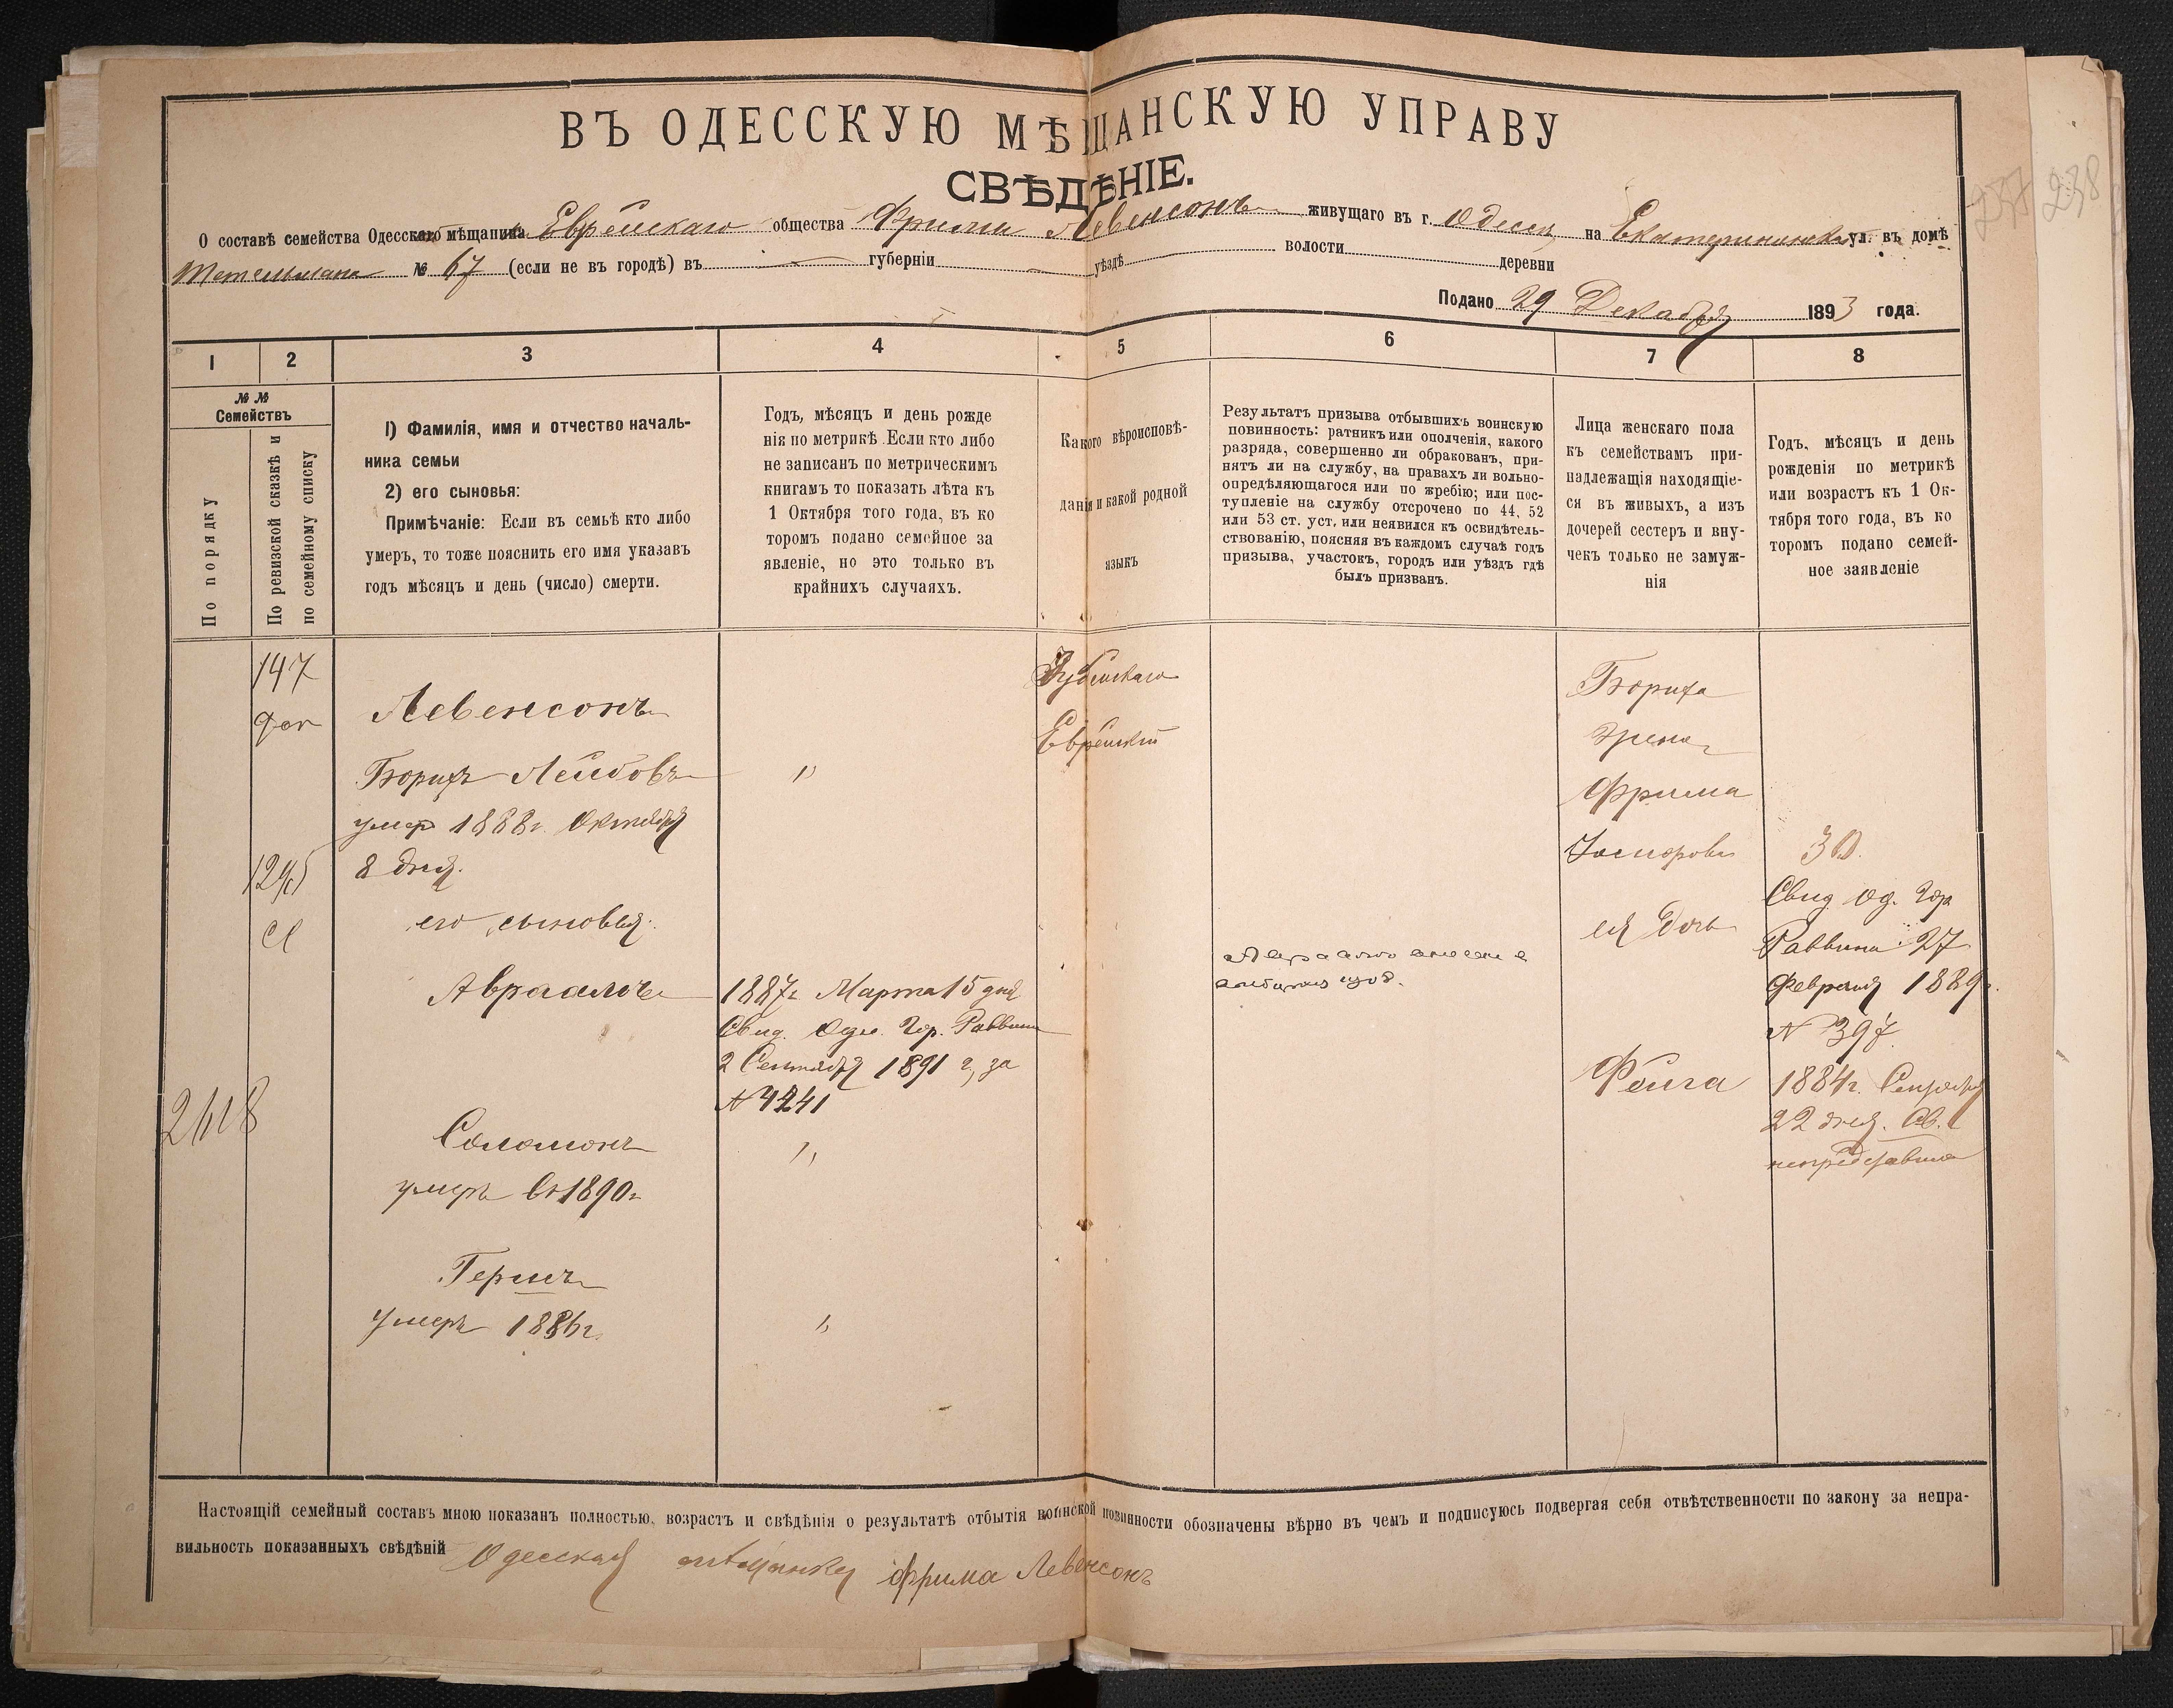 ВЪ ОДЕССКУЮ МѢЩАНСКУЮ УПРАВУ
СВѢДѢНІЕ.
О составѣ семейства Одесскаго мѣщанина Еврейскаго общества Фримы Левенсонъ живущаго въ г. Одессѣ на Екатерининской ул. въ домѣ
Тетельмана № 67 (если не въ городѣ) въ губерніи уѣздѣ волости деревни
Подано 29 Декабря 1893 года.
237 238
1 2 3 4 5 6 7 8
№ №
Семействъ
По порядку
По ревизской сказкѣ и
по семейному списку
1) Фамилія, имя и отчество началь-
ника семьи
2) его сыновья:
Примѣчаніе: Если въ семьѣ кто либо
умеръ, то тоже пояснить его имя указавъ
годъ мѣсяцъ и день (число) смерти.
Годъ, мѣсяцъ и день рожде
нія по метрикѣ Если кто либо
не записанъ по метрическимъ
книгамъ то показать лѣта къ
1 Октября того года, въ ко
торомъ подано семейное за
явленіе, но это только въ
крайнихъ случаяхъ.
Какого вѣроисповѣ-
данія и какой родной
языкъ
Результатъ призыва отбывшихъ воинскую
повинность: ратникъ или ополченія, какого
разряда, совершенно ли обракованъ, при-
нятъ ли на службу, на правахъ ли вольно-
опредѣляющагося или по жребію; или пос-
тупленіе на службу отсрочено по 44, 52
или 53 ст. уст. или неявился къ освидѣтель-
ствованію, поясняя въ каждомъ случаѣ годъ
призыва, участокъ, городъ или уѣздъ гдѣ
былъ призванъ.
Лица женскаго пола
къ семействамъ при-
надлежащія находящіе-
ся въ живыхъ, а изъ
дочерей сестеръ и вну-
чекъ только не замуж-
нія
Годъ, мѣсяцъ и день
рожденія по метрикѣ
или возрастъ къ 1 Ок-
тября того года, въ ко
торомъ подано семей-
ное заявленіе
147
доп
1295
2618
Левенсонъ
Борухъ Лейбовъ
умеръ 1888г. Октября
8 дня.
его сыновья:
Авраамъ
Соломонъ
умеръ въ 1890г
Гершъ
умеръ 1886г.
"
1887г Марта 15 дня
Свид. Одес. Гор. Раввина
2 Сентября 1891 г, за
"
"
Іудейскаго
Еврейскій
Боруха
жена
Фрима
ея дочь
Фейга
30
Свид. Од. Гор
Раввина 27
Февраля 1889г.
N 397
1884г. Сентября
22 дня. Св.
непредставила
Настоящій семейный составъ мною показанъ полностью, возрастъ и свѣдѣнія о результатѣ отбытія воинской повинности обозначены вѣрно въ чемъ и подписуюсь подвергая себя отвѣтственности по закону за непра-
вильность показанныхъ свѣдѣній Одесская мѣщанка Фрима Левенсонъ